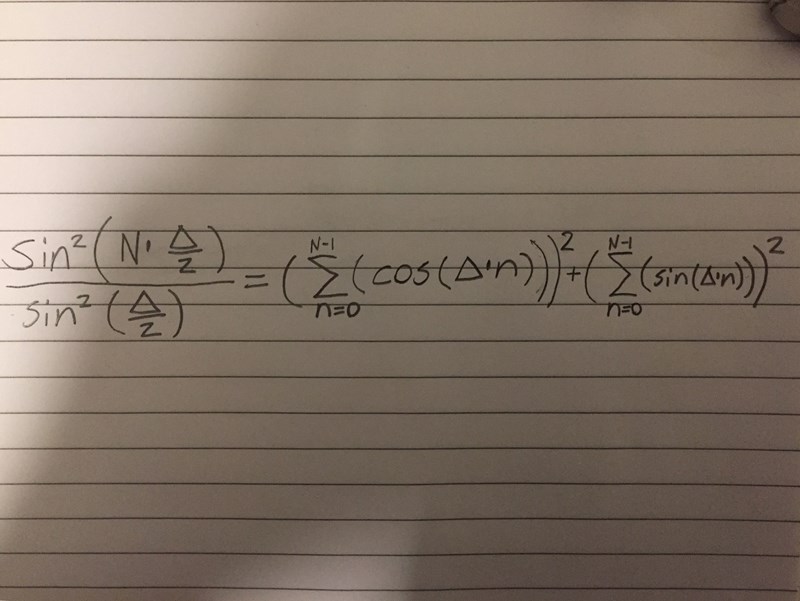 sin²(N·Δ/2)/sin²(Δ/2) = (∑_{n=0}^{N-1}(cos(Δ·n)))² + (∑_{n=0}^{N-1}(sin(Δ·n)))²